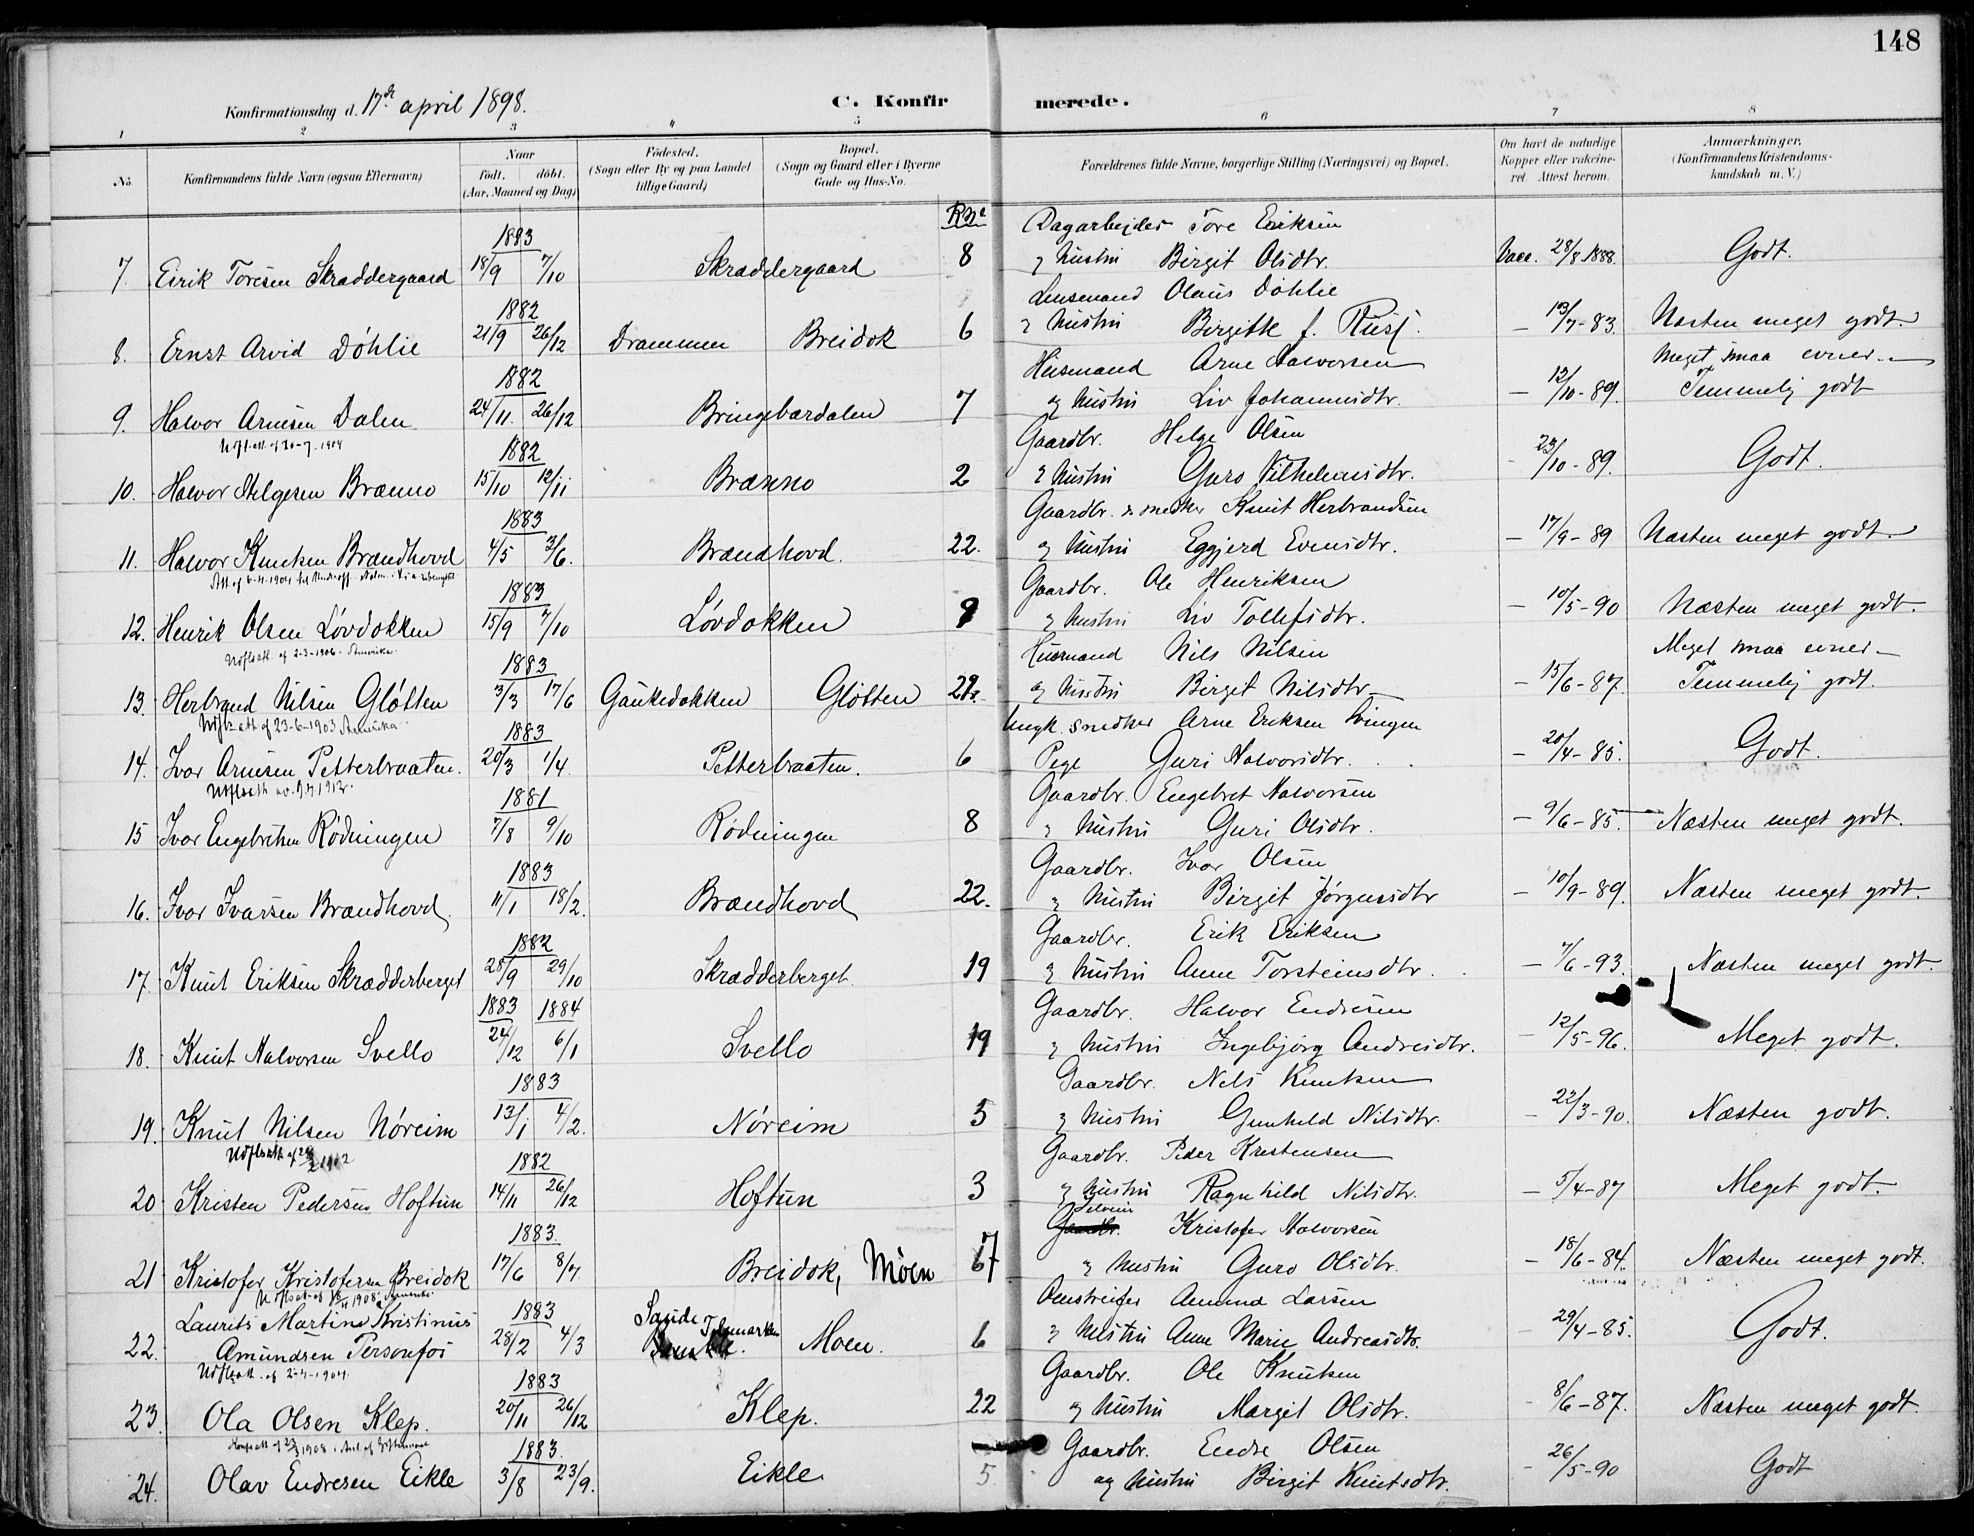 148
Konfirmationsdag d. 17de april 1898.
C. Konfir merede.
1 2 3 4 5 6 7 8
No. Konfirmandens fulde Navn (ogsaa Efternavn) Naar født. døbt. (Aar, Maaned og Dag) Fødested. (Sogn eller By og paa Landet tillige Gaard) Bopæl. (Sogn og Gaard eller i Byerne Gade og Hus-No. Forældrenes fulde Navne, borgerlige Stilling (Næringsvei) og Bopæl. Om havt de naturlige Kopper eller vakcineret. Attest herom. Anmærkninger. (Konfirmandens Kristendomskundskab m. V.)
1883 Dagarbejder Tore Eriksen
7. Eirik Toresen Skraddergaard 18/9 7/10 Skraddergaard 8 og hustru Birgit Olsdtr. Vacc. 28/8 1888. Godt.
1882 Lensmand Olaus Døhlie
8. Ernst Arvid Døhlie 21/9 26/12 Drammen Breidok 6 og hustru Birgitte f. Rusf. — 13/7-83. Næsten meget godt.
1882 Husmand Arne Halvorsen Meget smaa evner.—
9. Halvor Arnesen Dalen 24/11. 26/12 Bringebærdalen 7 og hustru Liv Johannesdtr. — 12/10-89. Temmelig godt
1882 Gaardbr. Helge Olsen
10. Halvor Helgesen Brænno 15/10 12/11 Brænno 2 og hustru Guro Vilhelmsdtr. 23/10-89. Godt.
1883 Gaardbr. & snedker Knut Herbrandsen
11. Halvor Knutsen Brændhovd 4/5 3/6. Brændhovd. 22. og hustru Eggjerd Evensdtr. — 17/9-89 Næsten meget godt.
1883 Gaardbr. Ole Henriksen
12. Henrik Olsen Løvdokken 15/9 7/10 Løvdokken 9 og hustru Liv Tollefsdtr. — 10/5-90 Næsten meget godt.
Udflatt. af 2-3-1906. Amerika.
1883 Husmand Nils Nilsen Meget smaa evner—
13. Herbrand Nilsen Gløtten 3/3 17/6 Gaukedokken Gløtten og hustru Birgit Nilsdtr. — 15/6-87. Temmelig godt.
Udflatt. af 23-6-1903 Amerika.
1883 Ungk. snedker Arne Eriksen Svingen
14. Ivar Arnesen Petterbraaten. 20/3 1/4. Petterbraaten. 6 Pege Guri Halvorsdtr. — 20/4-85. Godt.
1881 Gaardbr. Engebret Halvorsen
15 Ivar Engebretsen Rødningen 7/8 9/10 Rødningen 8 og hustru Guri Olsdtr. — 9/6-85. Næsten meget godt.
1883 Gaardbr. Ivar Olsen
16. Ivar Ivarsen Brændhovd. 11/1 18/2. Brændhovd 22. og hustru Birgit Jørgensdtr — 10/9-89. Næsten meget godt.
1882 Gaardbr. Erik Eriksen
17. Knut Eriksen Skrædderberget 28/9 29/10 Skrædderberget 19 og hustru Anne Torsteinsdtr. — 7/6-93. Næsten meget godt.
1883 1884 Gaardbr. Halvor Endresen
18. Knut Halvorsen Svello 24/12 6/1 Svello 19 og hustru Ingebjørg Andresdtr. — 12/5-96. Meget godt.
1883 Gaardbr. Nels Knutsen
19. Knut Nilsen Nøreim 13/1 4/2. Nøreim 5 og hustru Gunhild Nilsdtr. — 22/3-90. Næsten godt.
1882 Gaardbr. Peder Kristensen
20 Kristen Pedersen Hoftun 14/11 26/12 Hoftun 3 og hustru Ragnhild Nilsdtr. — 5/4-87 Meget godt.
1883. Gaardbr. Kristofer Halvorsen
21 Kristofer Kristofersen Breidok 17/6 8/7 Breidok, Moen 67 og hustru Guro Olsdtr. — 18/6-84. Næsten meget godt.
Laurits Martins Kristinus 1883 Sande Telemarken Omstreifer Amund Larsen
22. Amundsen Personfoi 28/2 4/3 Moen. 6 og hustru Anne Marie Andreasdtr. 29/4-85. Godt.
Udflatt. af 2-4-1904.
1883 Gaardbr. Ole Knutsen
23. Ola Olsen Klep. 20/11 26/12 Klep. 22 og hustru Margit Olsdtr. 8/6-87. Næsten meget godt.
1883. Gaardbr. Endre Olsen
24. Olav Endresen Eikle 3/8 23/9. Eikle 5 og hustru Birgit Knutsdtr. 26/5-90 Godt